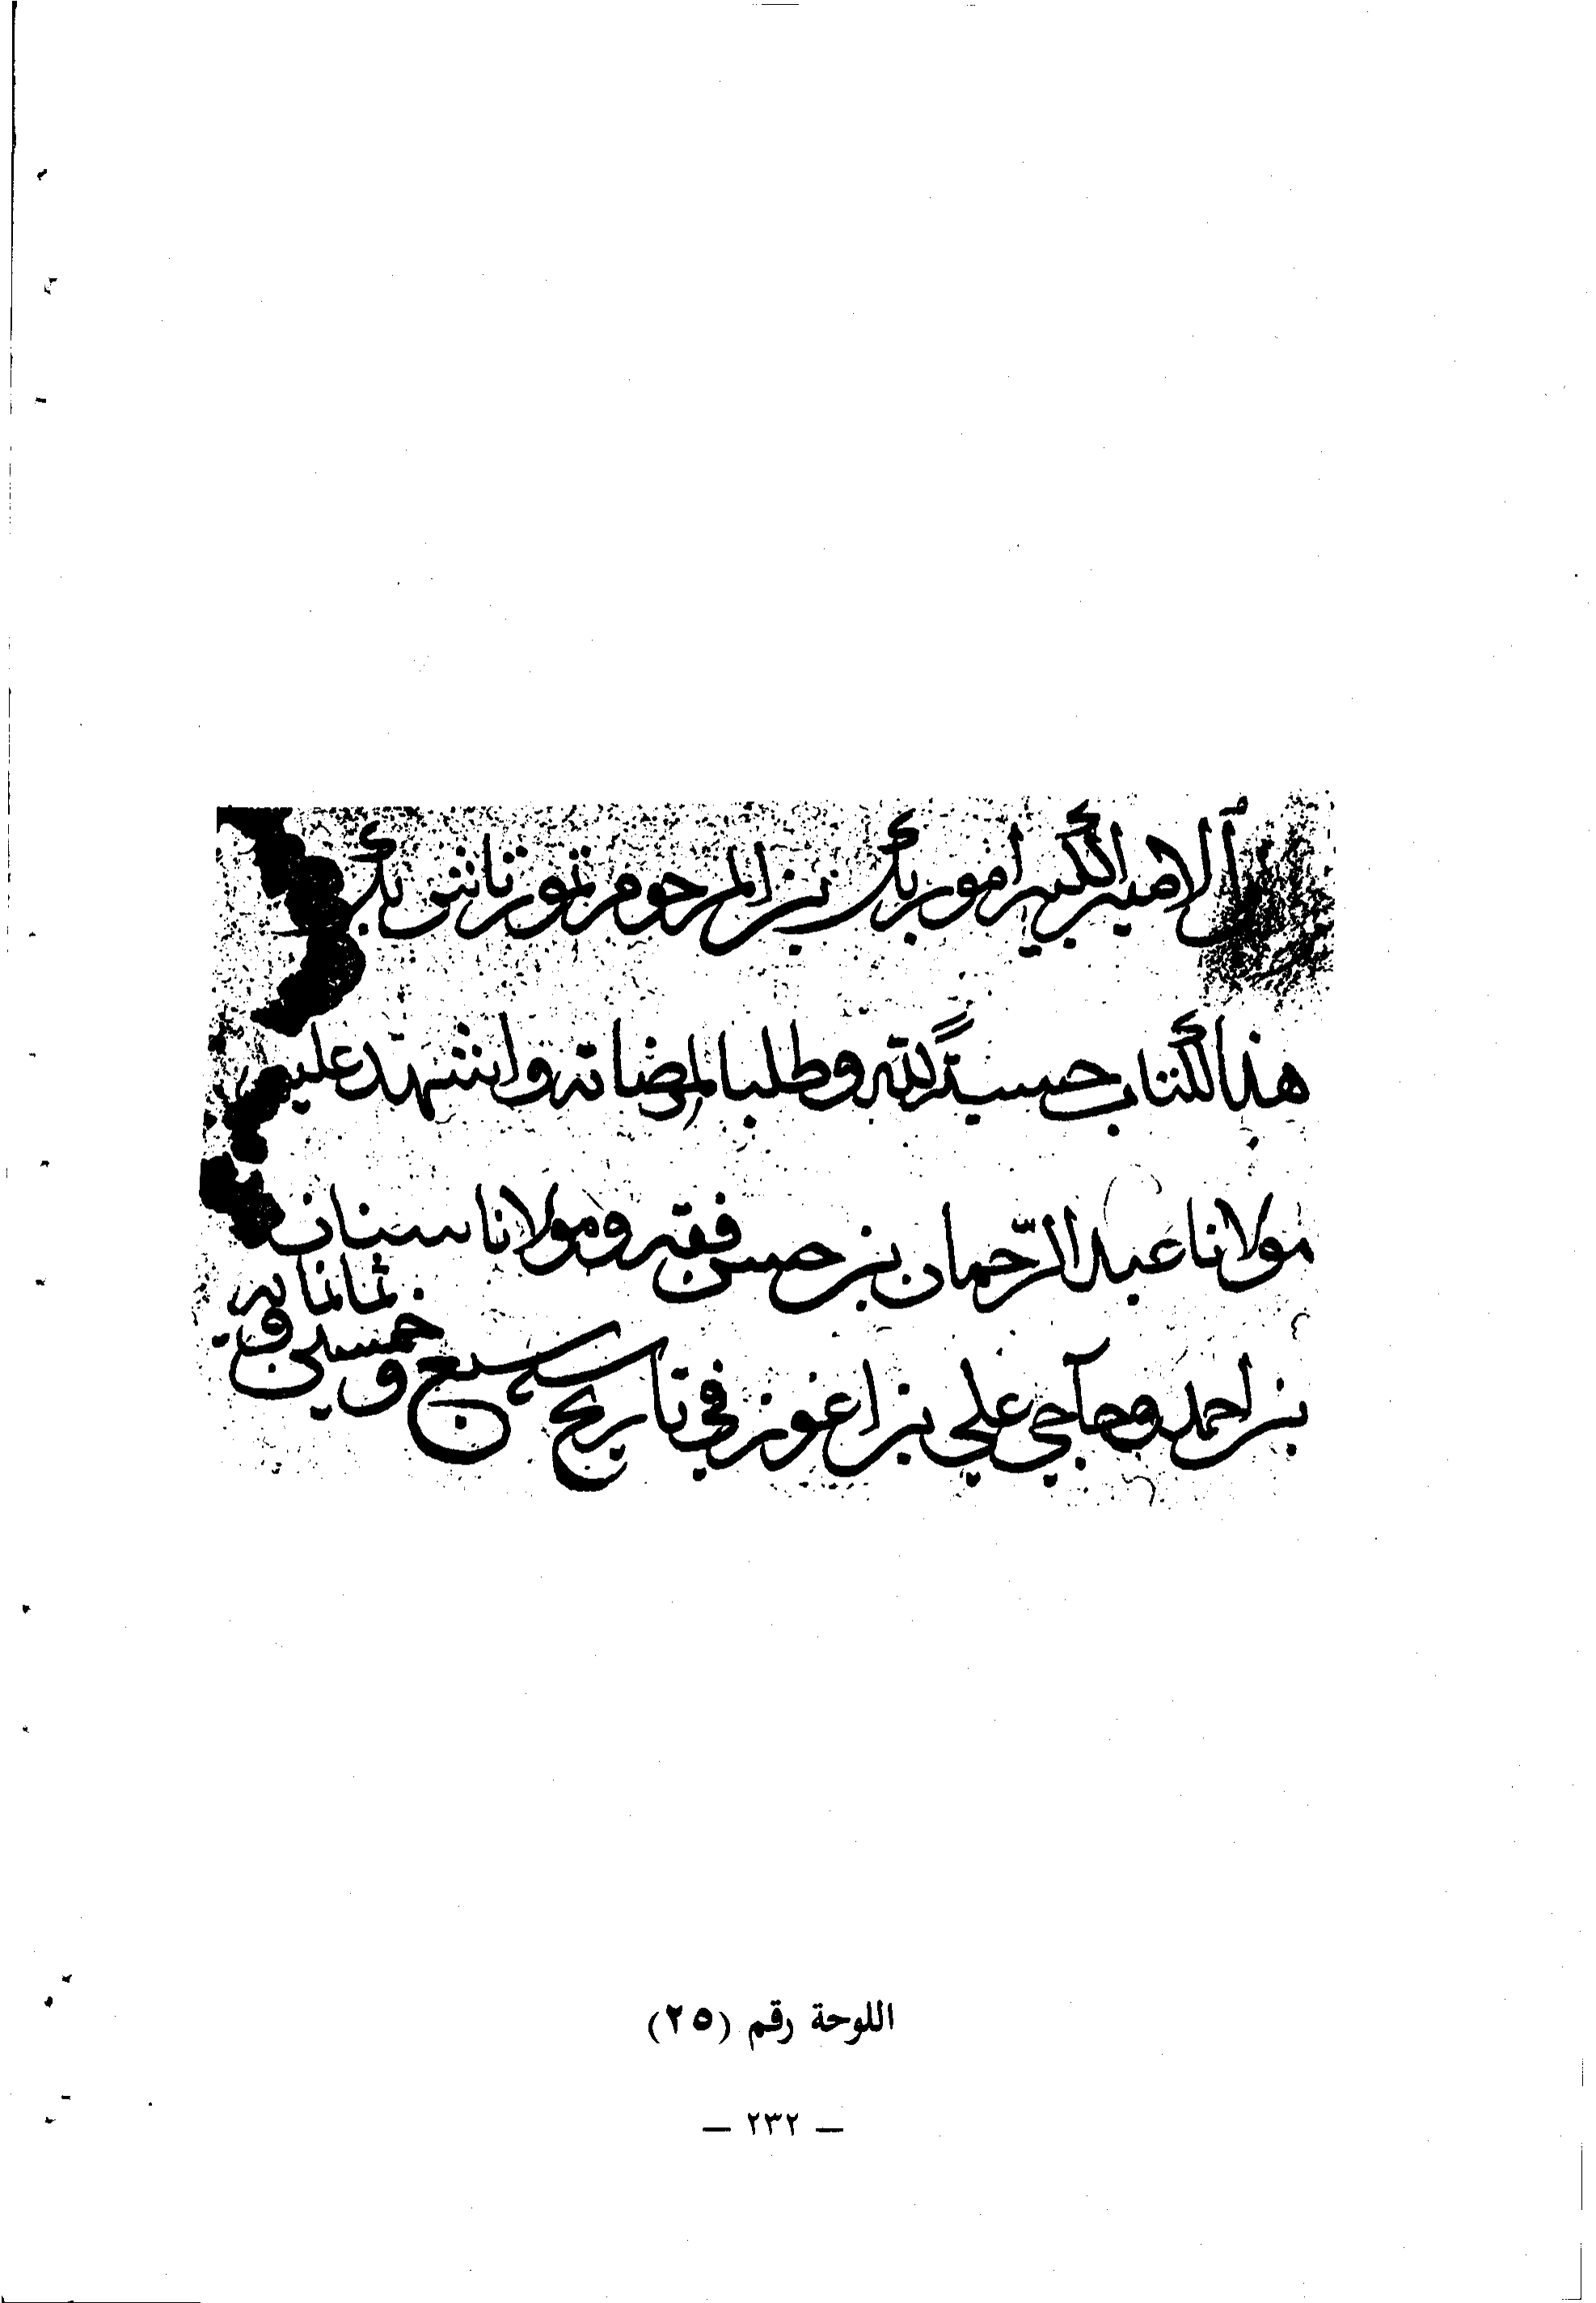 الامير الكبير امور بك بن المرحوم تمورتاش بك
هذا الكتاب حسبةً لله وطلبا لمرضاته واشهد عليه
مولانا عبد الرّحمان بن حسن فقيه ومولانا سنان
بن احمد وحاجي علي بن اغوز في تاريخ سنة سبع و خمسين و
ثمانمايه
اللوحة رقم (٢٥)
— ٢٣٢ —